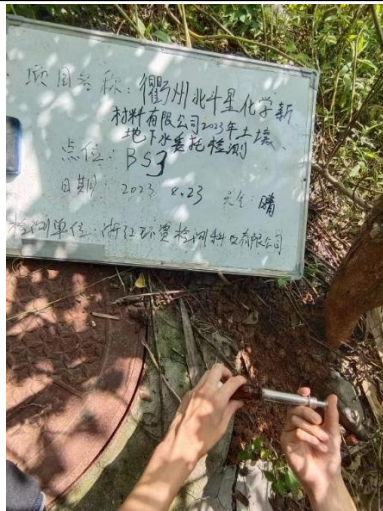 项目名称：衢州北斗星化学新
材料有限公司2023年土壤、
地下水委托检测
点位：BS3
日期：2023 8.23 天气：晴
检测单位：浙江环资检测科技有限公司